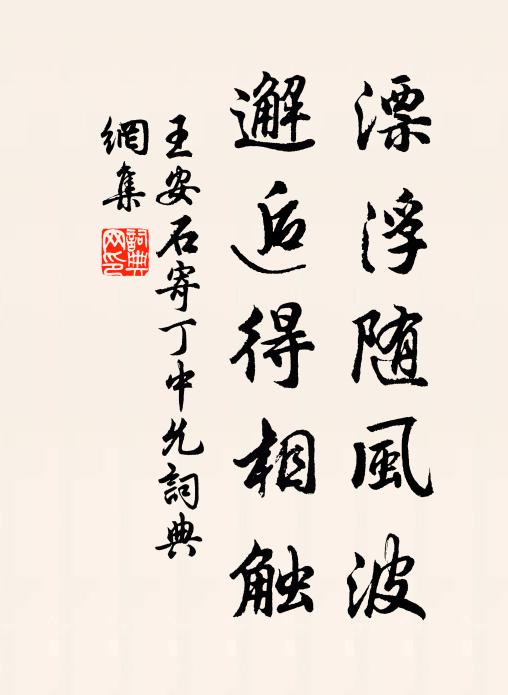 漂浮随風波
邂逅得相触
王安石寄丁中允詞典
網集
詞典
网印